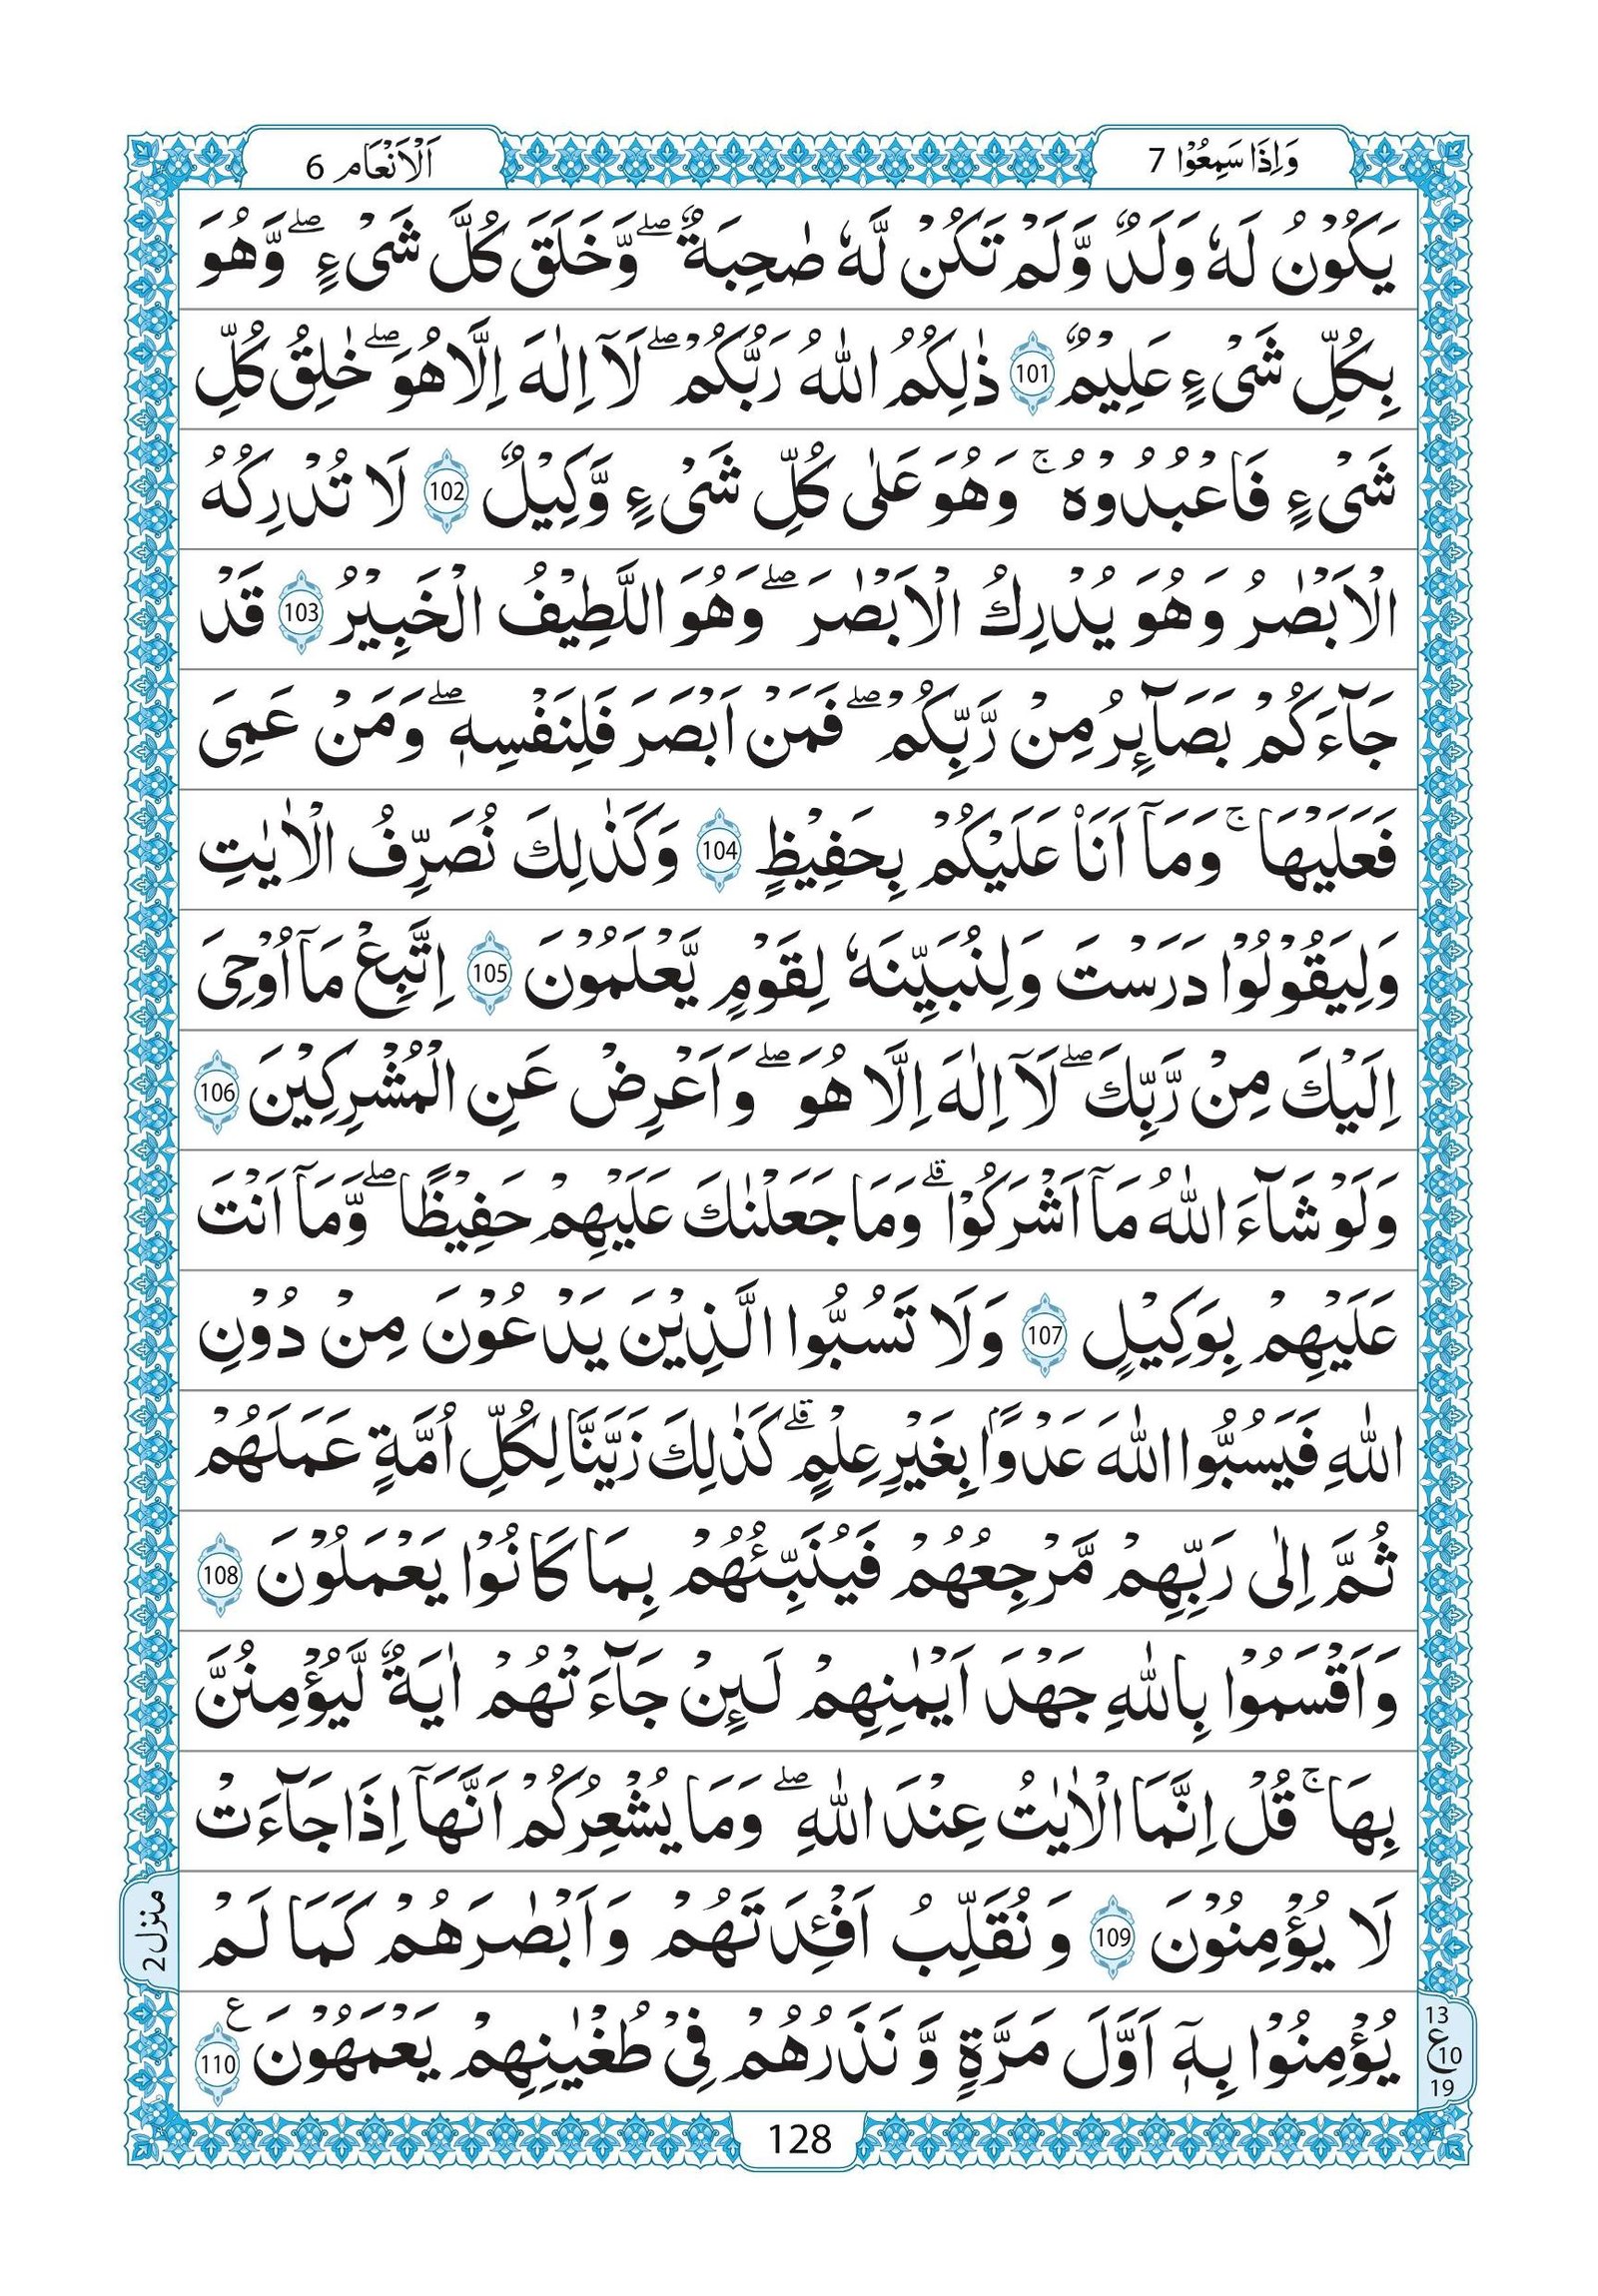 وَاِذَا سَمِعُوْا 7
اَلْاَنْعَام 6
يَكُوْنُ لَهٗ وَلَدٌ وَّلَمْ تَكُنْ لَّهٗ صٰحِبَةٌ ۖ وَّخَلَقَ كُلَّ شَىْءٍ ۖ وَّهُوَ
بِكُلِّ شَىْءٍ عَلِيْمٌ 101 ذٰلِكُمُ اللّٰهُ رَبُّكُمْ ۖ لَآ اِلٰهَ اِلَّا هُوَ ۖ خٰلِقُ كُلِّ
شَىْءٍ فَاعْبُدُوْهُ ۚ وَهُوَ عَلٰى كُلِّ شَىْءٍ وَّكِيْلٌ 102 لَا تُدْرِكُهُ
الْاَبْصٰرُ وَهُوَ يُدْرِكُ الْاَبْصٰرَ ۖ وَهُوَ اللَّطِيْفُ الْخَبِيْرُ 103 قَدْ
جَآءَكُمْ بَصَآىِٕرُ مِنْ رَّبِّكُمْ ۖ فَمَنْ اَبْصَرَ فَلِنَفْسِهٖ ۖ وَمَنْ عَمِىَ
فَعَلَيْهَا ۚ وَمَآ اَنَا۠ عَلَيْكُمْ بِحَفِيْظٍ 104 وَكَذٰلِكَ نُصَرِّفُ الْاٰيٰتِ
وَلِيَقُوْلُوْا دَرَسْتَ وَلِنُبَيِّنَهٗ لِقَوْمٍ يَّعْلَمُوْنَ 105 اِتَّبِعْ مَآ اُوْحِىَ
اِلَيْكَ مِنْ رَّبِّكَ ۖ لَآ اِلٰهَ اِلَّا هُوَ ۖ وَاَعْرِضْ عَنِ الْمُشْرِكِيْنَ 106
وَلَوْ شَآءَ اللّٰهُ مَآ اَشْرَكُوْا ۗ وَمَا جَعَلْنٰكَ عَلَيْهِمْ حَفِيْظًا ۖ وَّمَآ اَنْتَ
عَلَيْهِمْ بِوَكِيْلٍ 107 وَلَا تَسُبُّوا الَّذِيْنَ يَدْعُوْنَ مِنْ دُوْنِ
اللّٰهِ فَيَسُبُّوا اللّٰهَ عَدْوًاۢ بِغَيْرِ عِلْمٍ ۗ كَذٰلِكَ زَيَّنَّا لِكُلِّ اُمَّةٍ عَمَلَهُمْ
ثُمَّ اِلٰى رَبِّهِمْ مَّرْجِعُهُمْ فَيُنَبِّئُهُمْ بِمَا كَانُوْا يَعْمَلُوْنَ 108
وَاَقْسَمُوْا بِاللّٰهِ جَهْدَ اَيْمٰنِهِمْ لَىِٕنْ جَآءَتْهُمْ اٰيَةٌ لَّيُؤْمِنُنَّ
بِهَا ۚ قُلْ اِنَّمَا الْاٰيٰتُ عِنْدَ اللّٰهِ ۖ وَمَا يُشْعِرُكُمْ اَنَّهَآ اِذَا جَآءَتْ
لَا يُؤْمِنُوْنَ 109 وَنُقَلِّبُ اَفْـِٕدَتَهُمْ وَاَبْصٰرَهُمْ كَمَا لَمْ
يُؤْمِنُوْا بِهٖٓ اَوَّلَ مَرَّةٍ وَّنَذَرُهُمْ فِىْ طُغْيٰنِهِمْ يَعْمَهُوْنَ ع 110
منزل 2
13
ع 10
19
128